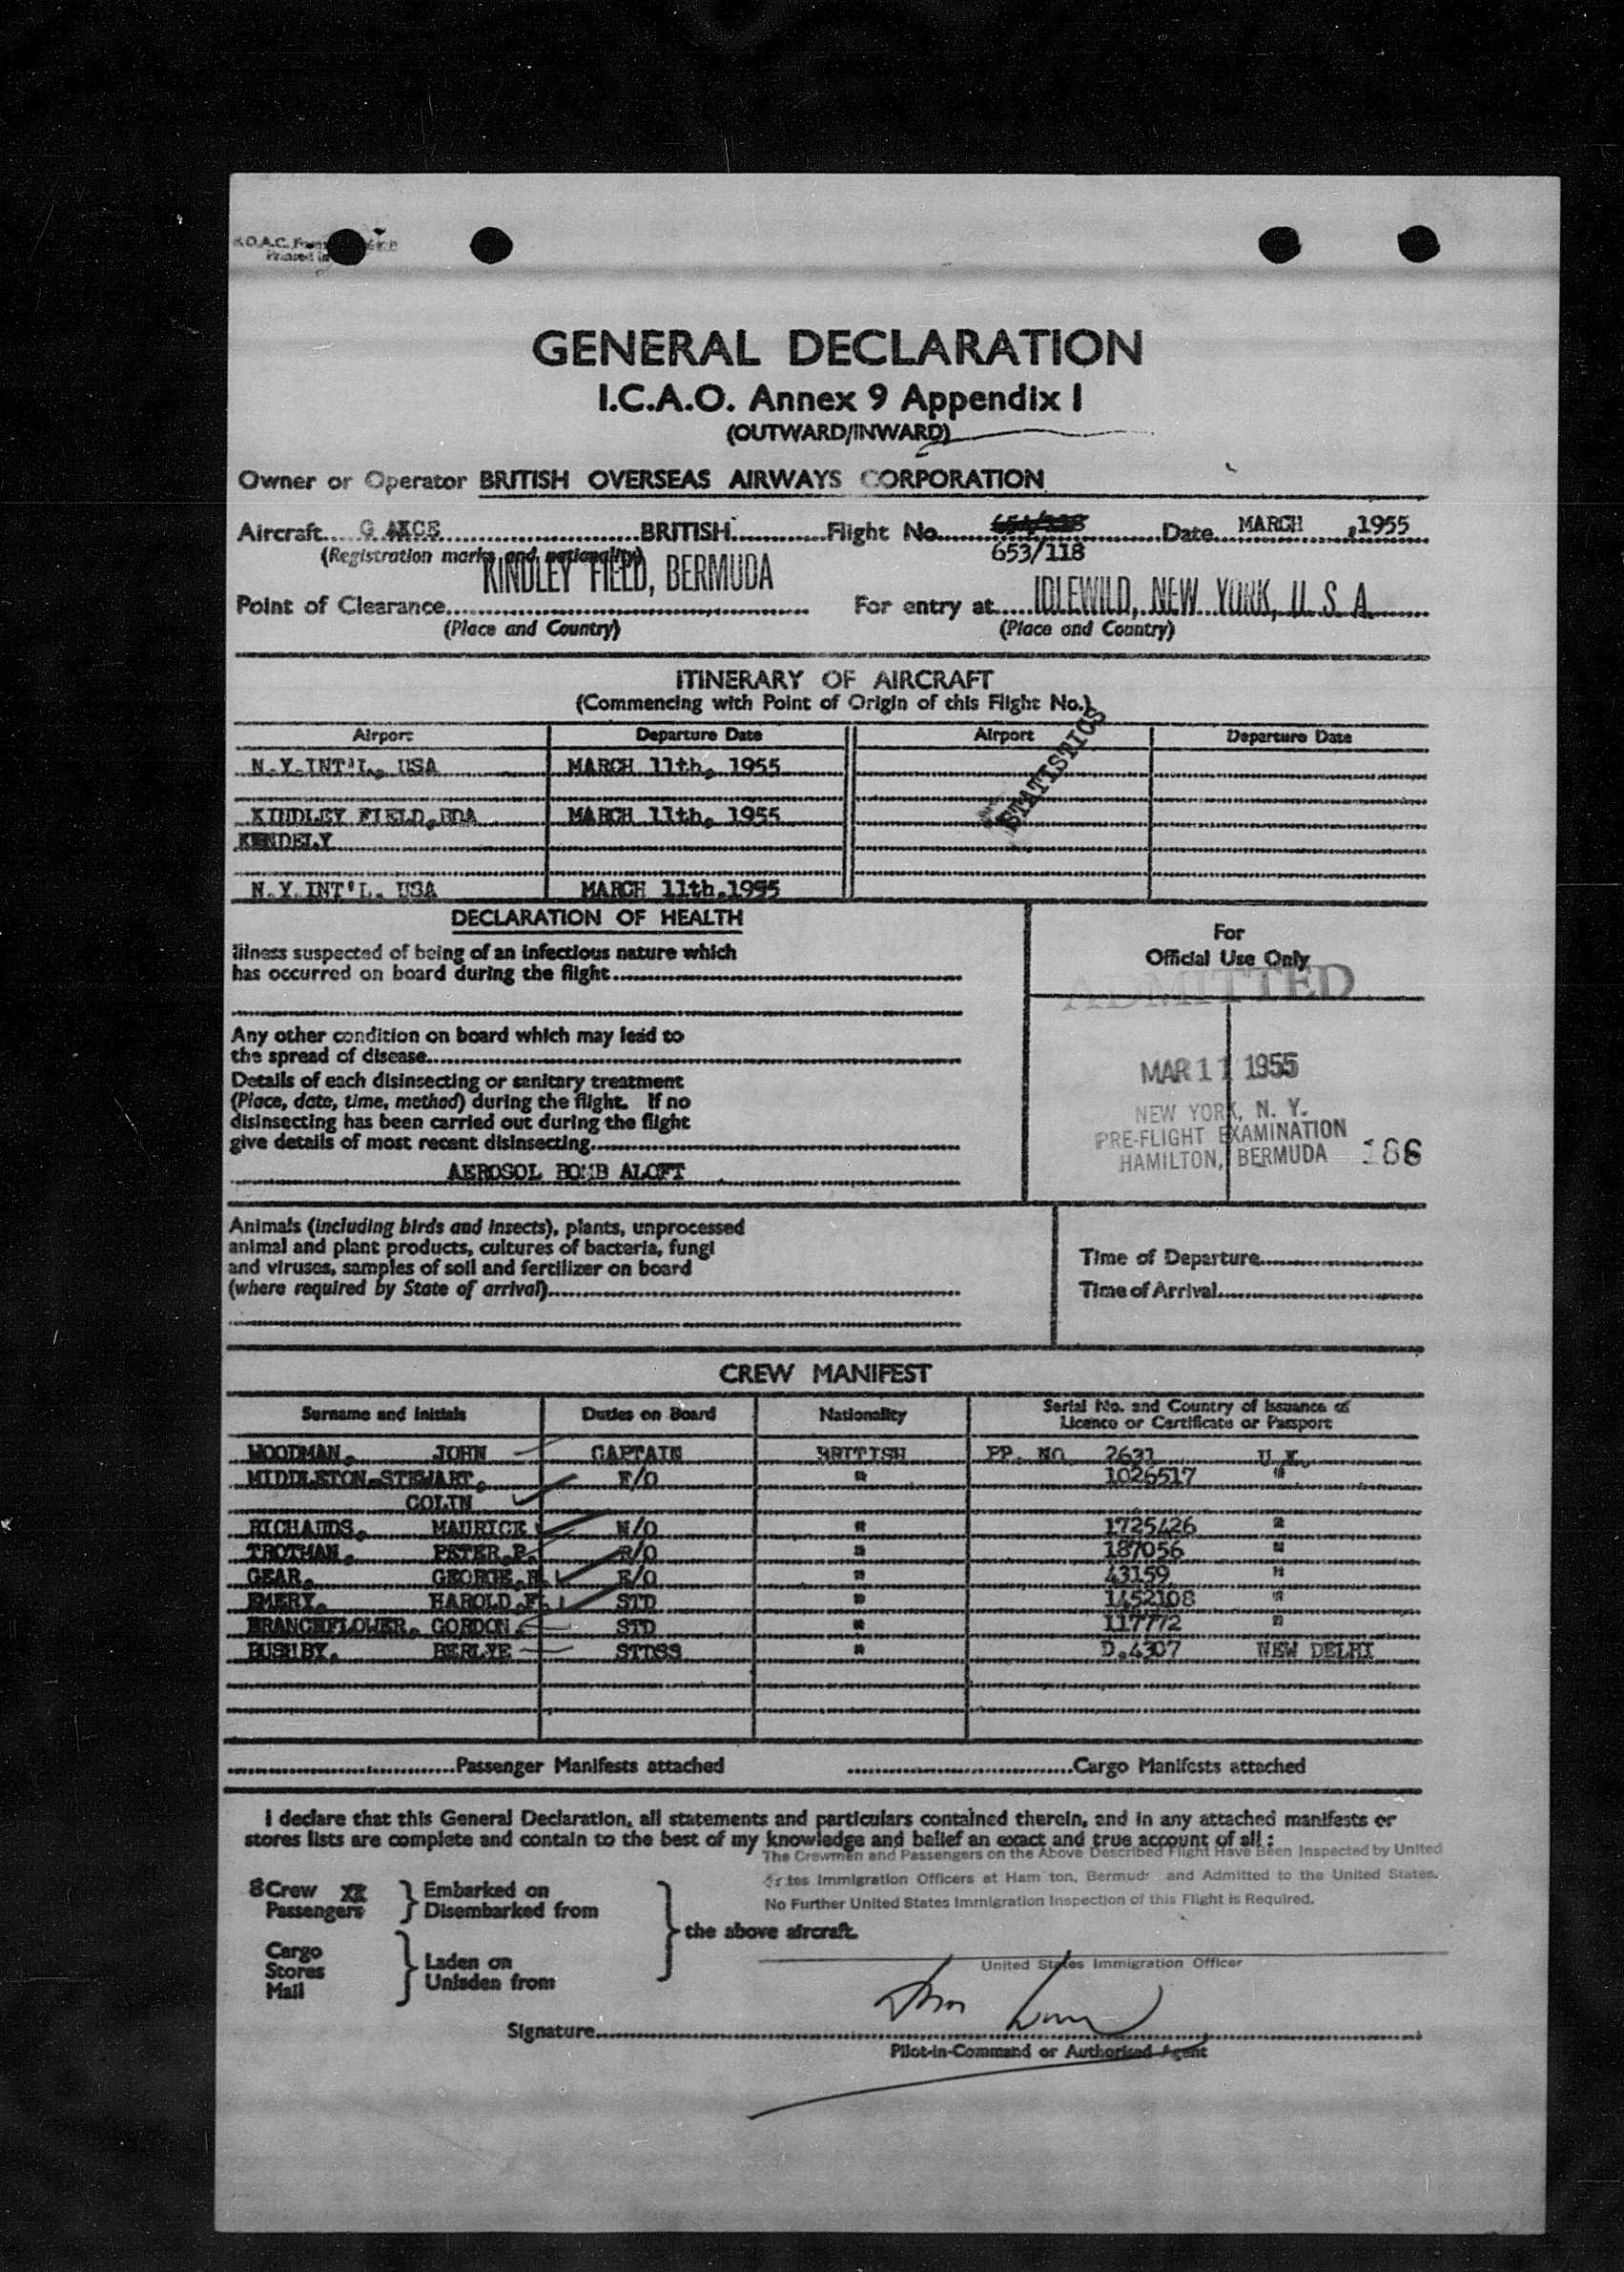 B.O.A.C. Form
Printed in
GENERAL DECLARATION
I.C.A.O. Annex 9 Appendix I
(OUTWARD/INWARD)
Owner or Operator BRITISH OVERSEAS AIRWAYS CORPORATION
Aircraft G AKCE BRITISH Flight No. Date MARCH ,1955
(Registration marks and nationality) 653/118
KINDLEY FIELD, BERMUDA IDLEWILD, NEW YORK, U. S. A.
Point of Clearance For entry at
(Place and Country) (Place and Country)
ITINERARY OF AIRCRAFT
(Commencing with Point of Origin of this Flight No.)
STATISTICS
Airport Departure Date Airport Departure Date
N.Y.INT'L. USA MARCH 11th, 1955
KINDLEY FIELD,BDA MARCH 11th, 1955
KENDELY
N.Y.INT'L. USA MARCH 11th,1955
DECLARATION OF HEALTH
Illness suspected of being of an infectious nature which
has occurred on board during the flight
Any other condition on board which may lead to
the spread of disease
Details of each disinsecting or sanitary treatment
(Place, date, time, method) during the flight. If no
disinsecting has been carried out during the flight
give details of most recent disinsecting
AEROSOL BOMB ALOFT
For
Official Use Only
ADMITTED
MAR 11 1955
NEW YORK, N. Y.
PRE-FLIGHT EXAMINATION
HAMILTON, BERMUDA 186
Animals (including birds and insects), plants, unprocessed
animal and plant products, cultures of bacteria, fungi
and viruses, samples of soil and fertilizer on board
(where required by State of arrival)
Time of Departure
Time of Arrival
CREW MANIFEST
Surname and Initials Duties on Board Nationality Serial No. and Country of Issuance of
Licence or Certificate or Passport
WOODMAN. JOHN CAPTAIN BRITISH PP. NO. 2631 U.K.
MIDDLETON-STEWART. F/O " 1026517 "
COLIN
RICHARDS. MAURICE N/O " 1725426 "
TROTMAN. PETER.P. R/O " 187056 "
GEAR. GEORGE.R. E/O " 43159 "
EMERY. HAROLD.F. STD " 1452108 "
BRANCHFLOWER. GORDON. STD " 117772 "
BUSHBY. BERLYE STDSS " D.4307 NEW DELHI
Passenger Manifests attached Cargo Manifests attached
I declare that this General Declaration, all statements and particulars contained therein, and in any attached manifests or
stores lists are complete and contain to the best of my knowledge and belief an exact and true account of all :
The Crewmen and Passengers on the Above Described Flight Have Been Inspected by United
States Immigration Officers at Hamilton, Bermuda and Admitted to the United States.
No Further United States Immigration Inspection of this Flight is Required.
8 Crew XX Embarked on
Passengers Disembarked from
the above aircraft.
Cargo
Stores
Mail
Laden on
Unladen from
United States Immigration Officer
Signature
Pilot-in-Command or Authorised Agent